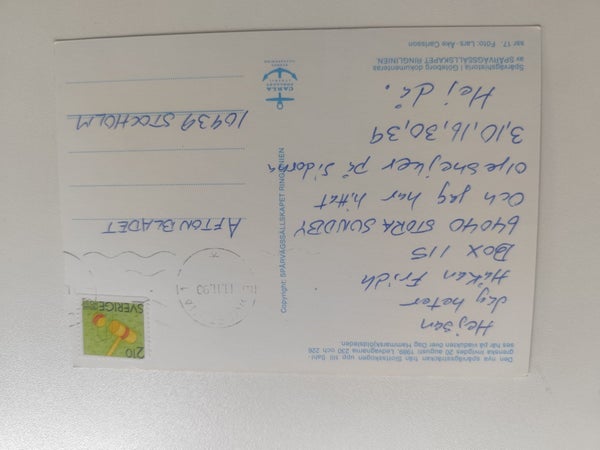 Den nya spårvägssträckan från Slottsskogen upp till Sahl-
grenska invigdes 20 augusti 1989. Ledvagnarna 230 och 226
ses här på viadukten över Dag Hammarskjöldsleden.
Hejsan
Jag heter
Håkan Fridh
BOX 115
64040 STORA SUNDBY
Och jag har hittat
oljeshejker på sidorna
3,10,16,30,39
Hej då.
Spårvägshistoria i Göteborg dokumenteras
av SPÅRVÄGSSÄLLSKAPET RINGLINIEN.
ser 17. Foto: Lars-Åke Carlsson
Copyright: SPÅRVÄGSSÄLLSKAPET RINGLINIEN
CARLA
2.10
SVERIGE
11.11.90
AFTONBLADET
10439 STOCKHOLM